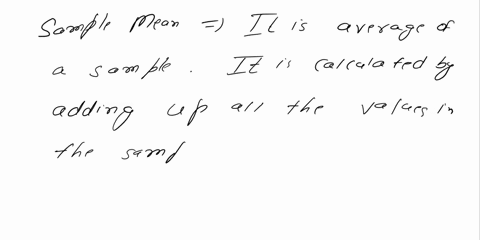 Sample Mean => It is average of
a sample. It is calculated by
adding up all the values in
the samp